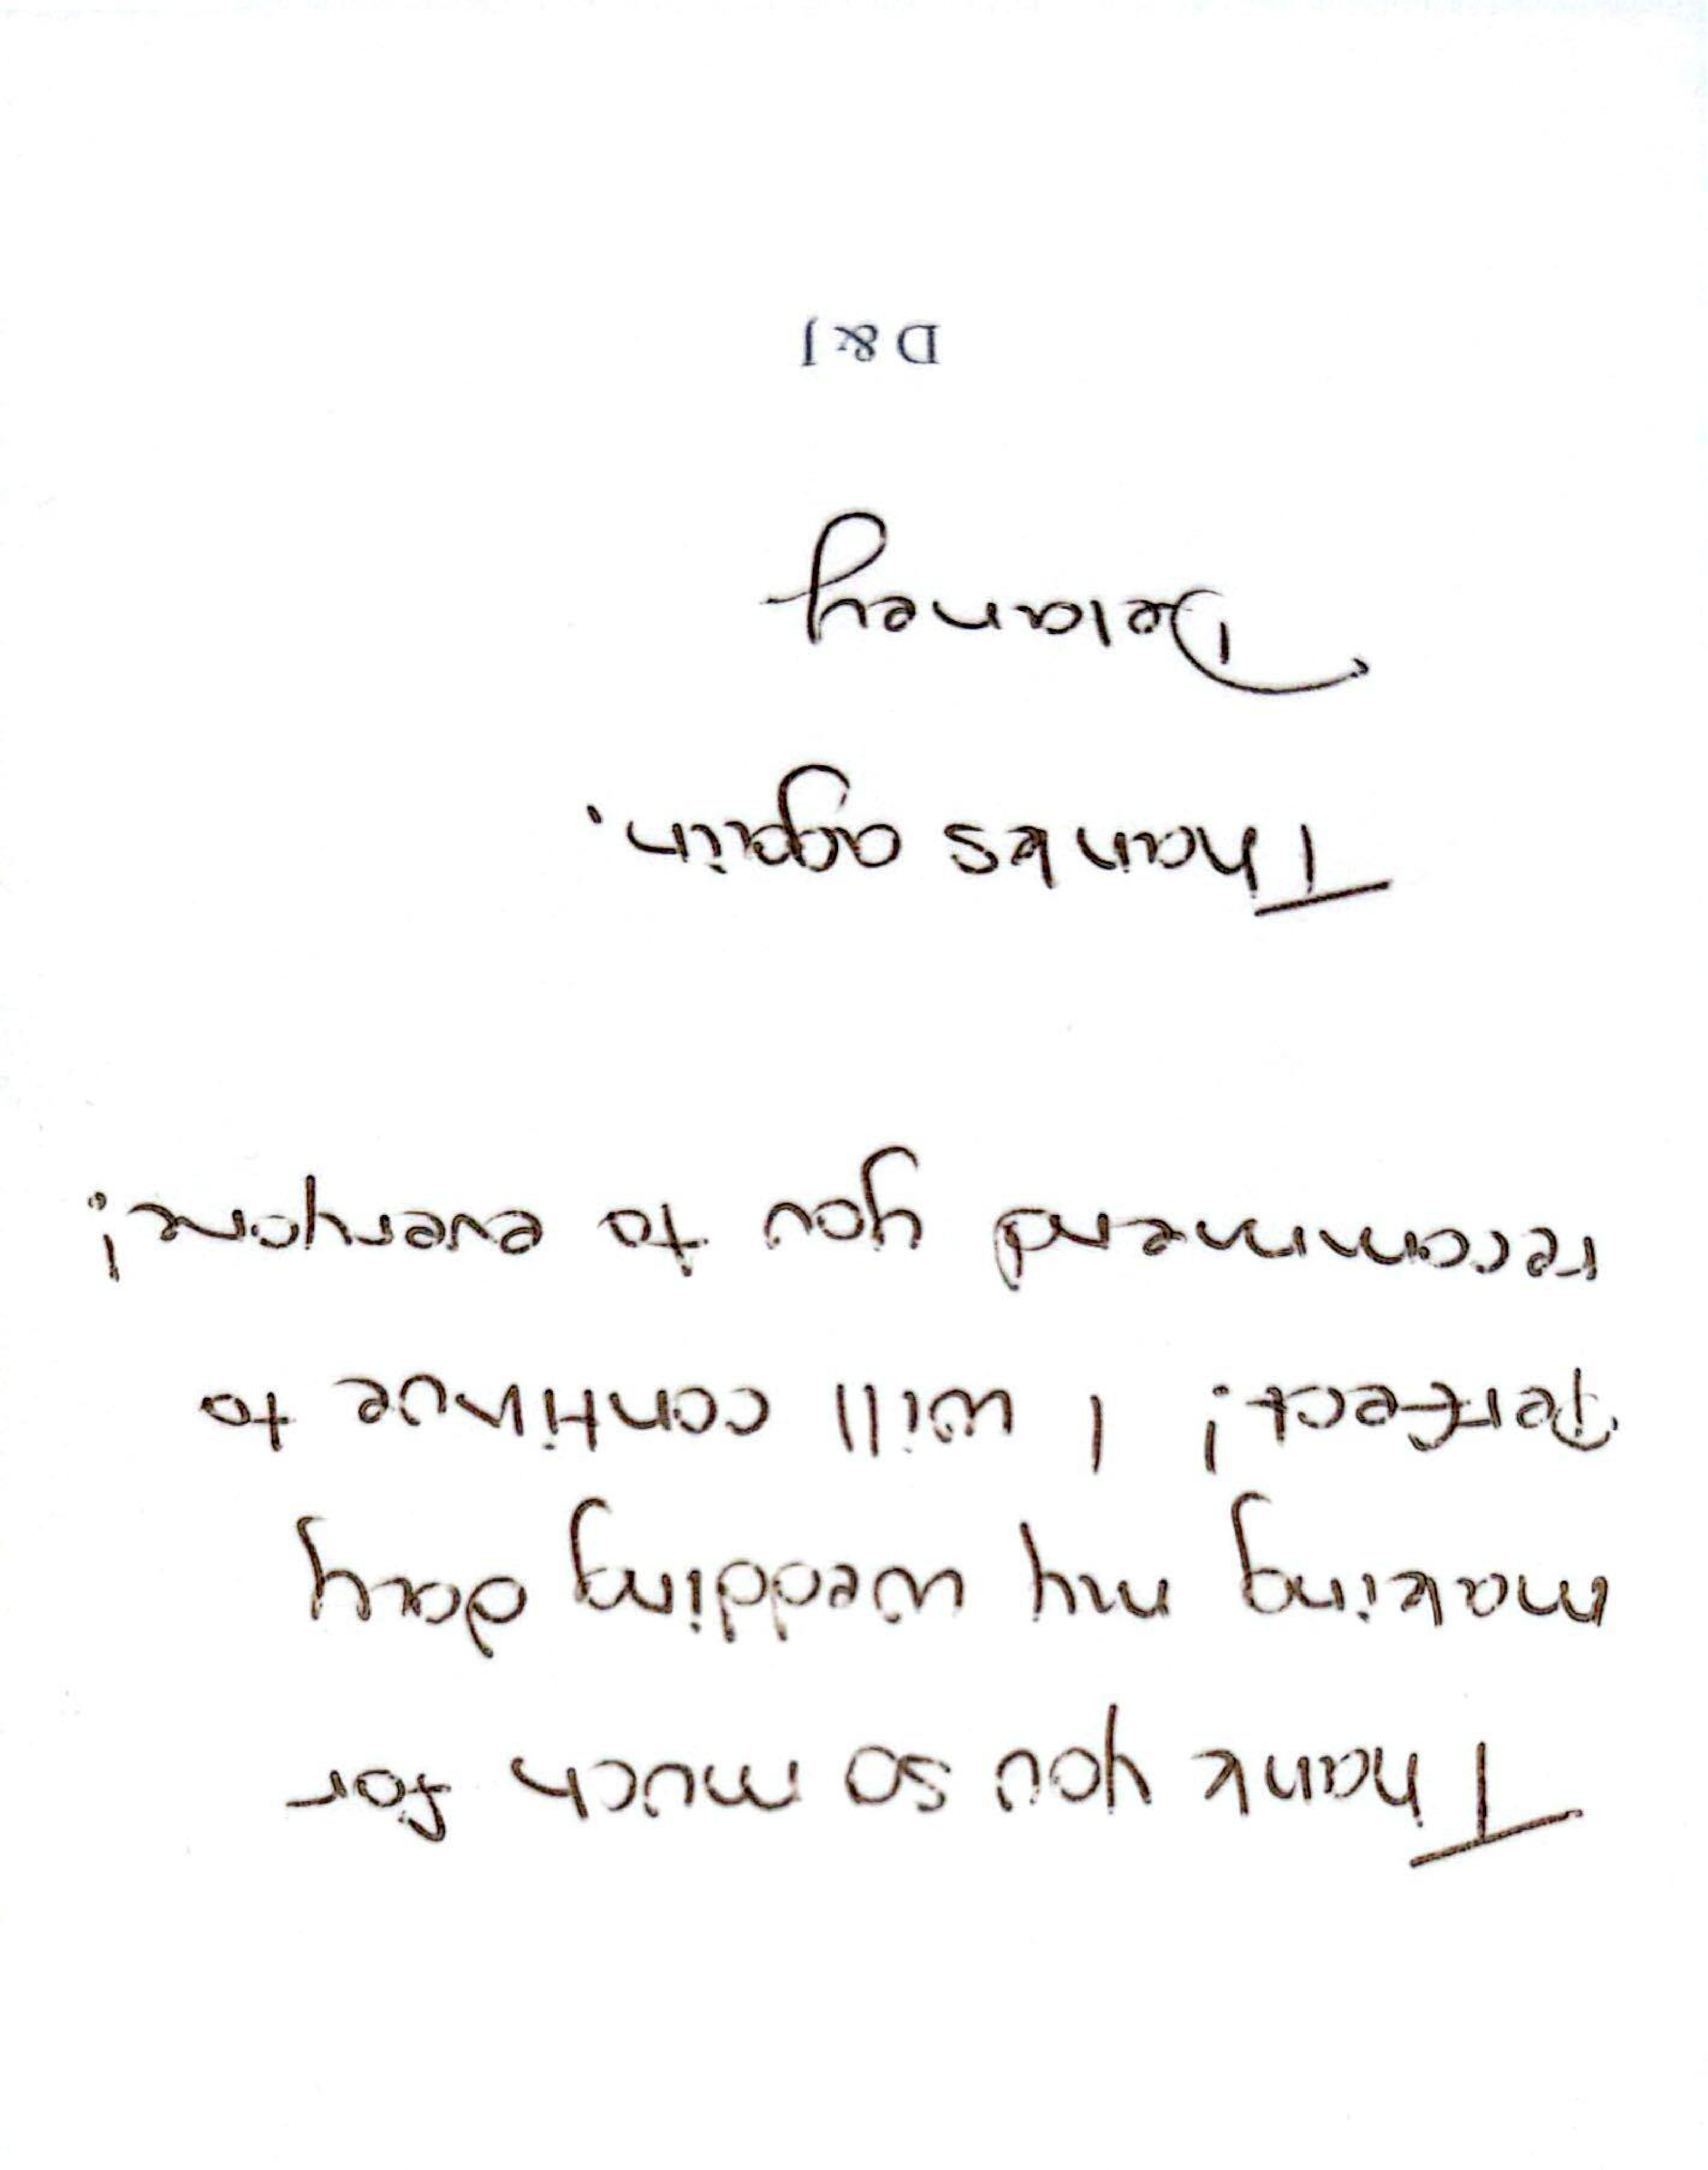 Thank you so much for
making my wedding day
Perfect! I will continue to
recommend you to everyone!
Thanks again.
Delaney
D & J